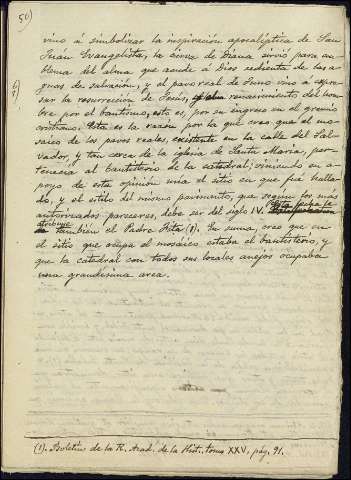 50)
vino á simbolizar la inspiración apocalíptica de San
Juán Evangelista, la cierva de Diana sirvió para em-
blema del alma que acude á Dios sedienta de las a-
guas de salvación, y el pavo real de Juno vino á expre-
sar la resurrección de Jesús, y el renacimiento del hom-
bre por el bautismo, esto es, por su ingreso en el gremio
cristiano. Esta es la razón por la que creo que el mo-
saico de los pavos reales, existente en la calle del Sal-
vador, y tan cerca de la iglesia de Santa María, per-
tenecía al bautisterio de la catedral; viniendo en a-
poyo de esta opinión mía el sitio en que fué halla-
do, y el estilo del mismo pavimento, que según los más
autorizados pareceres, debe ser del siglo IV. Esta fecha le
atribuye también el Padre Fita (1). En suma, creo que en
el sitio que ocupa el mosaico estaba el bautisterio, y
que la catedral con todos sus locales anejos ocupaban
una grandísima area.
(1). Boletín de la R. Acad. de la Hist. tomo XXV, pág. 91.